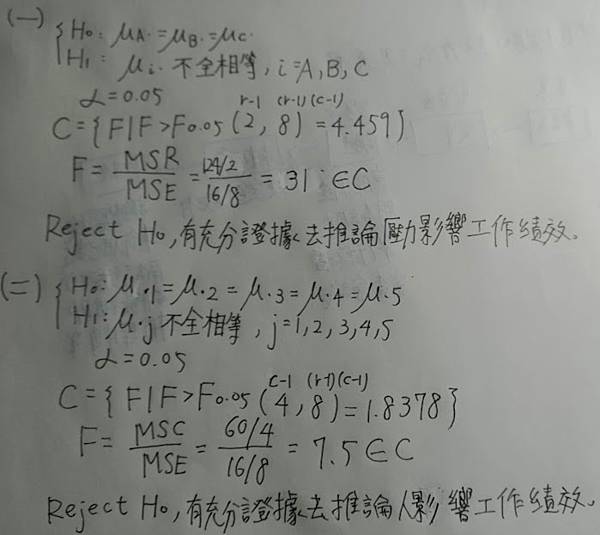 (一) { H₀: μA· = μB· = μC·
H₁: μi· 不全相等, i=A, B, C
α=0.05
r-1 (r-1)(c-1)
C={F|F>F0.05(2, 8)=4.459}
F = MSR/MSE = (124/2)/(16/8) = 31 ∈C
Reject H₀,有充分證據去推論壓力影響工作績效。
(二) { H₀: μ·1=μ·2=μ·3=μ·4=μ·5
H₁: μ·j 不全相等, j=1,2,3,4,5
α=0.05
c-1 (r-1)(c-1)
C={F|F>F0.05(4, 8)=1.8378}
F = MSC/MSE = (60/4)/(16/8) = 7.5 ∈C
Reject H₀,有充分證據去推論人影響工作績效。